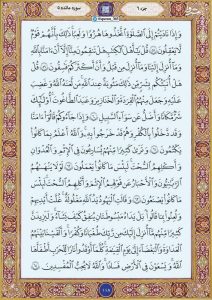 جزء ٦
سوره مائده ٥
وَإِذَا نَادَيْتُمْ إِلَى ٱلصَّلَوٰةِ ٱتَّخَذُوهَا هُزُوًا وَلَعِبًا ذَٰلِكَ بِأَنَّهُمْ قَوْمٌ
لَّا يَعْقِلُونَ ٥٨ قُلْ يَٰٓأَهْلَ ٱلْكِتَٰبِ هَلْ تَنقِمُونَ مِنَّآ إِلَّآ أَنْ ءَامَنَّا بِٱللَّهِ
وَمَآ أُنزِلَ إِلَيْنَا وَمَآ أُنزِلَ مِن قَبْلُ وَأَنَّ أَكْثَرَكُمْ فَٰسِقُونَ ٥٩ قُلْ
هَلْ أُنَبِّئُكُم بِشَرٍّ مِّن ذَٰلِكَ مَثُوبَةً عِندَ ٱللَّهِ مَن لَّعَنَهُ ٱللَّهُ وَغَضِبَ
عَلَيْهِ وَجَعَلَ مِنْهُمُ ٱلْقِرَدَةَ وَٱلْخَنَازِيرَ وَعَبَدَ ٱلطَّٰغُوتَ أُو۟لَٰٓئِكَ
شَرٌّ مَّكَانًا وَأَضَلُّ عَن سَوَآءِ ٱلسَّبِيلِ ٦٠ وَإِذَا جَآءُوكُمْ قَالُوٓا۟ ءَامَنَّا
وَقَد دَّخَلُوا۟ بِٱلْكُفْرِ وَهُمْ قَدْ خَرَجُوا۟ بِهِۦ وَٱللَّهُ أَعْلَمُ بِمَا كَانُوا۟
يَكْتُمُونَ ٦١ وَتَرَىٰ كَثِيرًا مِّنْهُمْ يُسَٰرِعُونَ فِى ٱلْإِثْمِ وَٱلْعُدْوَٰنِ
وَأَكْلِهِمُ ٱلسُّحْتَ لَبِئْسَ مَا كَانُوا۟ يَعْمَلُونَ ٦٢ لَوْلَا يَنْهَىٰهُمُ
ٱلرَّبَّٰنِيُّونَ وَٱلْأَحْبَارُ عَن قَوْلِهِمُ ٱلْإِثْمَ وَأَكْلِهِمُ ٱلسُّحْتَ لَبِئْسَ
مَا كَانُوا۟ يَصْنَعُونَ ٦٣ وَقَالَتِ ٱلْيَهُودُ يَدُ ٱللَّهِ مَغْلُولَةٌ غُلَّتْ أَيْدِيهِمْ
وَلُعِنُوا۟ بِمَا قَالُوا۟ بَلْ يَدَاهُ مَبْسُوطَتَانِ يُنفِقُ كَيْفَ يَشَآءُ وَلَيَزِيدَنَّ
كَثِيرًا مِّنْهُم مَّآ أُنزِلَ إِلَيْكَ مِن رَّبِّكَ طُغْيَٰنًا وَكُفْرًا وَأَلْقَيْنَا بَيْنَهُمُ
ٱلْعَدَٰوَةَ وَٱلْبَغْضَآءَ إِلَىٰ يَوْمِ ٱلْقِيَٰمَةِ كُلَّمَآ أَوْقَدُوا۟ نَارًا لِّلْحَرْبِ أَطْفَأَهَا
ٱللَّهُ وَيَسْعَوْنَ فِى ٱلْأَرْضِ فَسَادًا وَٱللَّهُ لَا يُحِبُّ ٱلْمُفْسِدِينَ ٦٤
١١٨